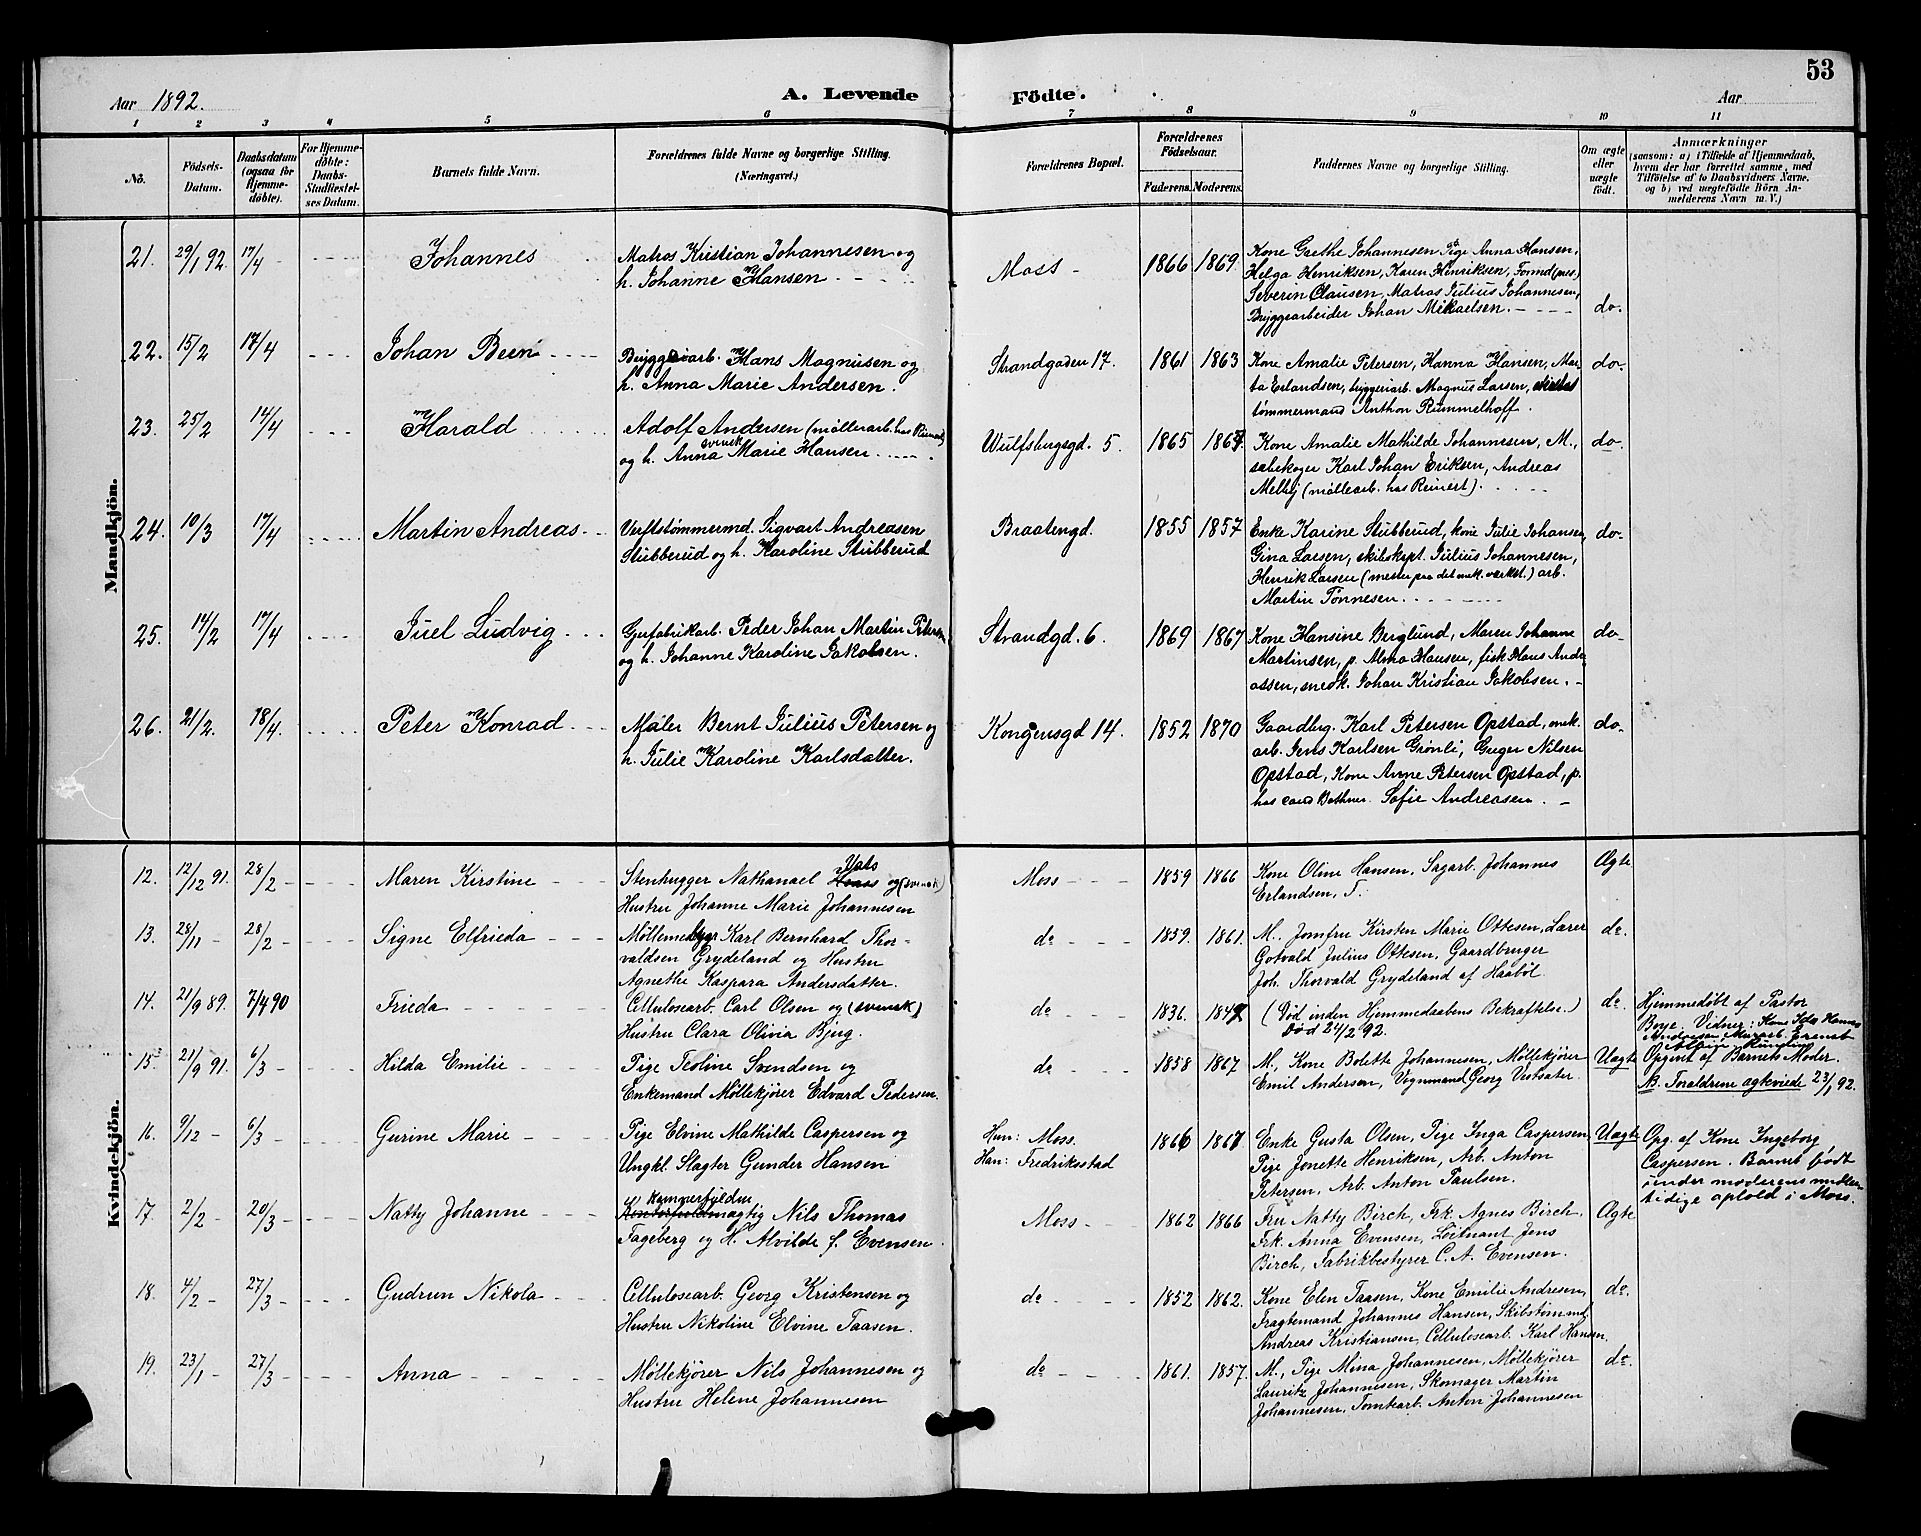 53
Aar 1892. A. Levende Födte. Aar
1 2 3 4 5 6 7 8 9 10 11
No. Födsels-Datum. Daabsdatum (ogsaa for Hjemme-döbte). For Hjemme-döbte: Daabs-Stadfæstel-ses Datum. Barnets fulde Navn. Forældrenes fulde Navne og borgerlige Stilling. (Næringsvei.) Forældrenes Bopæl. Forældrenes Födselsaar. Faderens. Moderens. Faddernes Navne og borgerlige Stilling. Om ægte eller uægte födt. Anmærkninger (saasom: a) i Tilfælde af Hjemmedaab, hvem der har forrettet samme, med Tilföielse af to Daabsvidners Navne, og b) ved uægtefödte Börn An-melderens Navn m. V.)
Mandkjön.
21. 29/1 92. 17/4 - Johannes Matros Kristian Johannesen og Moss - 1866 1869. Kone Grethe Johannesen Pige Anna Hansen,
h. Johanne Hansen Helga Henriksen, Karen Henriksen,
Severin Clausen, Matros Julius Johannesen,
Bryggearbeider Johan Mikaelsen. do-
22. 15/2 17/4 Johan Been Bryggeriarb. Hans Magnusen og Strandgaden 17. 1861 1863 Kone Amalie Petersen, Hanna Hansen, Mar- do-
h. Anna Marie Andersen. ta Erlandsen, bryggeriarb. Magnus Larsen,
tømmermand Anthon Rummelhoff.
23. 25/2 14/4 Harald Adolf Andersen (møllerarb. hos Reinert) Wulfsbergsgd. 5. 1865 1867. Kone Amalie Mathilde Johannesen, M., do-
og h. Anna svensk Marie Hansen. sæbekoger Karl Johan Eriksen, Andreas
Melby (møllearb. hos Reinert).
24. 10/3 17/4 Martin Andreas Verftstømmermd. Sigvart Andreasen Braatengd. 1855 1857 Enke Karine Stubberud, kone Julie Johansen, do-
Stubberud og h. Karoline Stubberud Gina Larsen, skibskapt. Julius Johannesen,
Henrik Larsen (mester paa det mek. værkst.) arb.
Martin Tønnesen.
25. 14/2 17/4 Juel Ludvig Peder Johan Martin Petersen Strandgd. 6. 1869 1867 Kone Hansine Berglund, Maren Johanne do-
og h. Johanne Karoline Jakobsen. Martinsen, p. Alma Hansen, fisk. Hans Andre-
assen, snedk. Johan Kristian Jakobsen. -
26. 21/2. 18/4. Peter Konrad Maler Bernt Julius Petersen og Kongensgd 14. 1852 1870 Gaardbrg. Karl Petersen Opstad, mek. do-
h. Julie Karoline Karlsdatter. arb. Jens Karlsen Grønli, Nilsen
Opstad, Kone Anne Petersen Opstad, p.
hos Sofie Andreasen. -
Kvindekjön.
12. 12/12 91. 28/2 - Maren Kirstine Vats
Stenhugger Nathanael og (svensk) Moss 1859 1866 Kone Oline Hansen, Sagarb. Johannes Ægte
Hustru Johanne Marie Johannesen Erlandsen, F.
13. 28/11 - 28/2 - Signe Elfrieda Karl Bernhard Thor- do 1859. 1861. M., Jomfru Kirsten Marie Ottesen, Lærer do.
valdsen Grydeland og Hustru Gotvald Julius Ottesen, Gaardbruger
Agnethe Kaspara Andersdatter. Joh. Thorvald Grydeland af Haabøl.
14. 21/9 89. 7/4 90 Frieda Cellulosearb. Carl Olsen og (svensk) do 1836. 1849 (Død inden Hjemmedaabens Bekræftelse.) do. Hjemmedøbt af Pastor
Hustru Clara Olivia Bjerg. Død 24/2 92. Boye. Vidner: Kone Ida Hansine
15. 21/9 91. 6/3 - Hilda Emilie Pige Teoline Svendsen og do 1858 1867 M., Kone Bolette Johannesen, Møllekjører Uægte Opgivet af Barnets Moder.
Enkemand Møllekjører Edvard Pedersen. Emil Andersen, Vognmand Georg Vestsater. NB. Forældrene ægteviede 23/1 92.
16. 9/12 - 6/3 - Gurine Marie Pige Elvine Mathilde Caspersen og Hun: Moss. 1866 1867 Enke Gusta Olsen, Pige Inga Caspersen, Uægte Opg. af Kone Ingeborg
Ungkl. Slagter Gunder Hansen Han: Fredriksstad Pige Jonette Henriksen, Arb. Anton Caspersen. Barnet født
Petersen, Arb. Anton Paulsen. under moderens midler-
tidige ophold i Moss.
17. 2/2 - 20/3 - Natty Johanne Nils Thomas Moss 1862 1866 Fru Natty Birch, Frk. Agnes Birch, Ægte
Fageberg og H. Alvilde f. Evensen. Frk. Anna Evensen, Løitnant Jens
Birch, Fabrikbestyrer C. A. Evensen.
18. 4/2 - 27/3 - Gudrun Nikola Cellulosearb. Georg Kristensen og do 1852 1862. Kone Elen Taasen, Kone Emilie Andresen, do.
Hustru Nikoline Elvine Taasen. Fragtemand Johannes Hansen, Skibstømmd.
Andreas Kristiansen, Cellulosearb. Karl Hansen.
19. 23/1 - 27/3 - Anna Møllekjører Nils Johannesen og do 1861. 1857. M., Pige Mina Johannesen, Møllekjører do.
Hustru Helene Johannesen Lauritz Johannesen, Skomager Martin
Johannesen, Tomtearb. Anton Johannesen